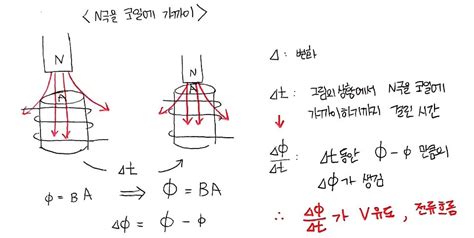 < N극을 코일에 가까이 >
N
A
N
A
Δt
ϕ = BA ⇒ Φ = BA
Δϕ = Φ - ϕ
Δ : 변화
Δt : 그림의 상황에서 N극을 코일에
가까이하기까지 걸린 시간
↓
Δϕ/Δt : Δt동안 Φ-ϕ 만큼의
Δϕ가 생김
∴ Δϕ/Δt 가 V유도, 전류흐름